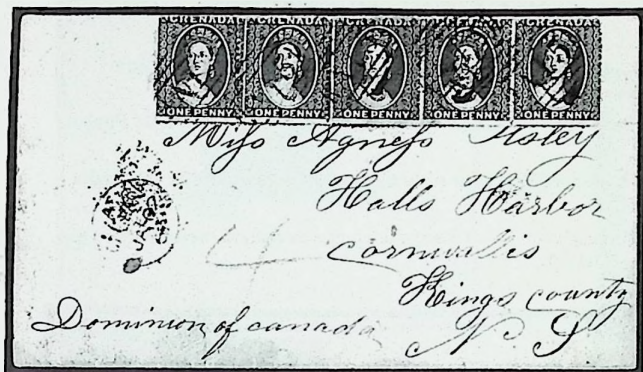 GRENADA GRENADA GRENADA GRENADA GRENADA
ONE PENNY ONE PENNY ONE PENNY ONE PENNY ONE PENNY
Miss Agness
Halls Harbor
Cornwallis
Kings county
Dominion of canada N S